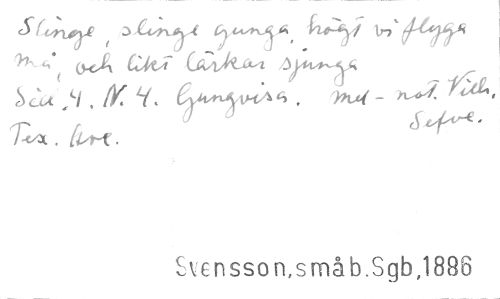 Slinge, slinge gunga, högt vi flyga
må, och likt lärkor sjunga
Sid. 4. N. 4. Gungvisa. mel-not. Vilh.
Sefve.
Tex. Are.
Svensson,småb.Sgb,1886